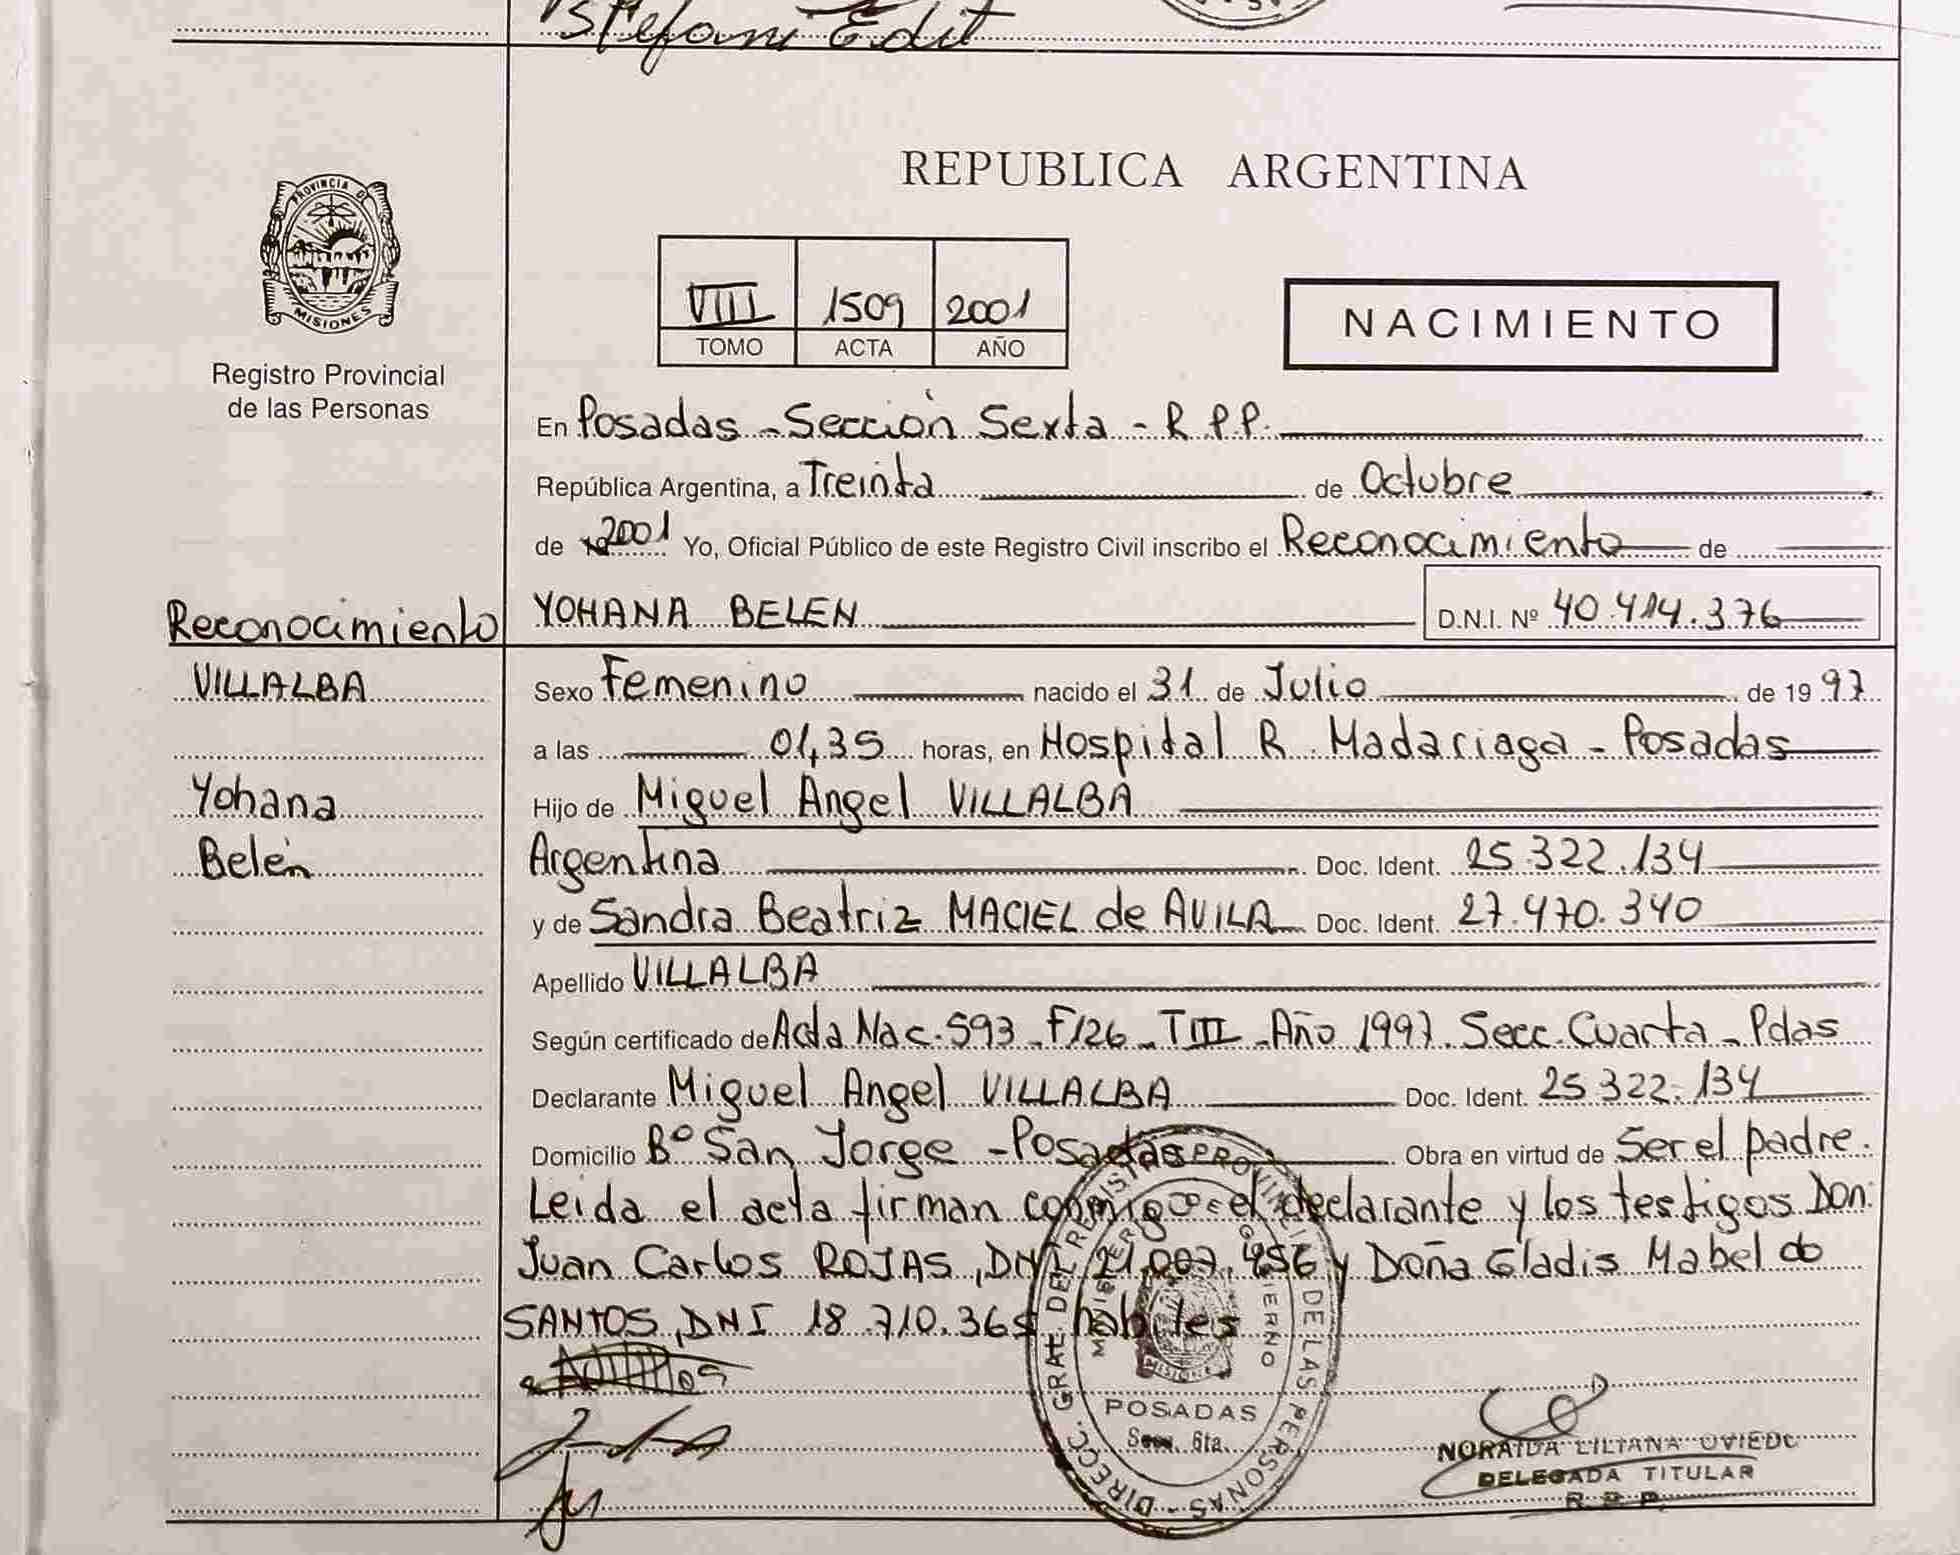 Stefani Edit
PROVINCIA DE
MISIONES
Registro Provincial
de las Personas
REPUBLICA ARGENTINA
VIII 1509 2001
TOMO ACTA AÑO
NACIMIENTO
En Posadas - Sección Sexta - R.P.P.
República Argentina, a Treinta de Octubre
de 2001 Yo, Oficial Público de este Registro Civil inscribo el Reconocimiento de
Reconocimiento YOHANA BELEN D.N.I. Nº 40.414.376
VILLALBA Sexo Femenino nacido el 31 de Julio de 1997
a las 01,35 horas, en Hospital R. Madariaga - Posadas
Yohana Hijo de Miguel Angel VILLALBA
Belén Argentina Doc. Ident. 25.322.134
y de Sandra Beatriz MACIEL de AVILA Doc. Ident. 27.470.340
Apellido VILLALBA
Según certificado de Acta Nac. 593 - F/26 - TIII - Año 1997. Secc. Cuarta - Pdas
Declarante Miguel Angel VILLALBA Doc. Ident. 25.322.134
Domicilio Bº San Jorge - Posadas Obra en virtud de Ser el padre.
Leida el acta firman conmigo el declarante y los testigos Don:
Juan Carlos ROJAS, DNI 21.007.456 y Doña Gladis Mabel do
SANTOS, DNI 18.710.365 habiles
DIRECC. GRAL. DEL REGISTRO PROVINCIAL DE LAS PERSONAS
MINISTERIO DE GOBIERNO
MISIONES
POSADAS
Secc. 6ta.
NORAIDA LILIANA OVIEDO
DELEGADA TITULAR
R.P.P.